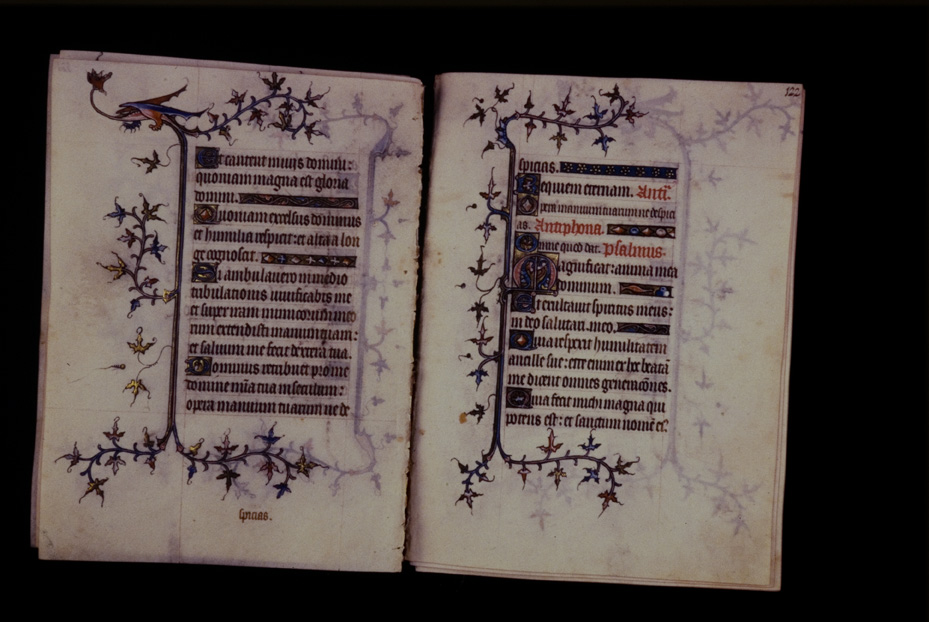 Et cantent in vijs domini:
quoniam magna est gloria
domini.
Quoniam excelsus dominus
et humilia respicit: et alta a lon
ge cognoscit.
Si ambulavero in medio
tribulationis vivificabis me
et super iram inimicorum meo
rum extendisti manum tuam:
et salvum me fecit dextera tua.
Dominus retribuet pro me
domine mia tua in seculum:
opera manuum tuarum ne de
spicias.
122
spicias.
Requiem eternam. Anti.
Opera manuum tuarum ne despici
as. Antiphona.
Omne quod dat. psalmus.
Magnificat: anima mea
dominum.
Et exultavit spiritus meus:
in deo salutari meo.
Quia respexit humilitatem
ancille sue: ecce enim ex hoc beatā
me dicent omnes generatiōes.
Quia fecit michi magna qui
potens est: et sanctum nomē eꝰ.